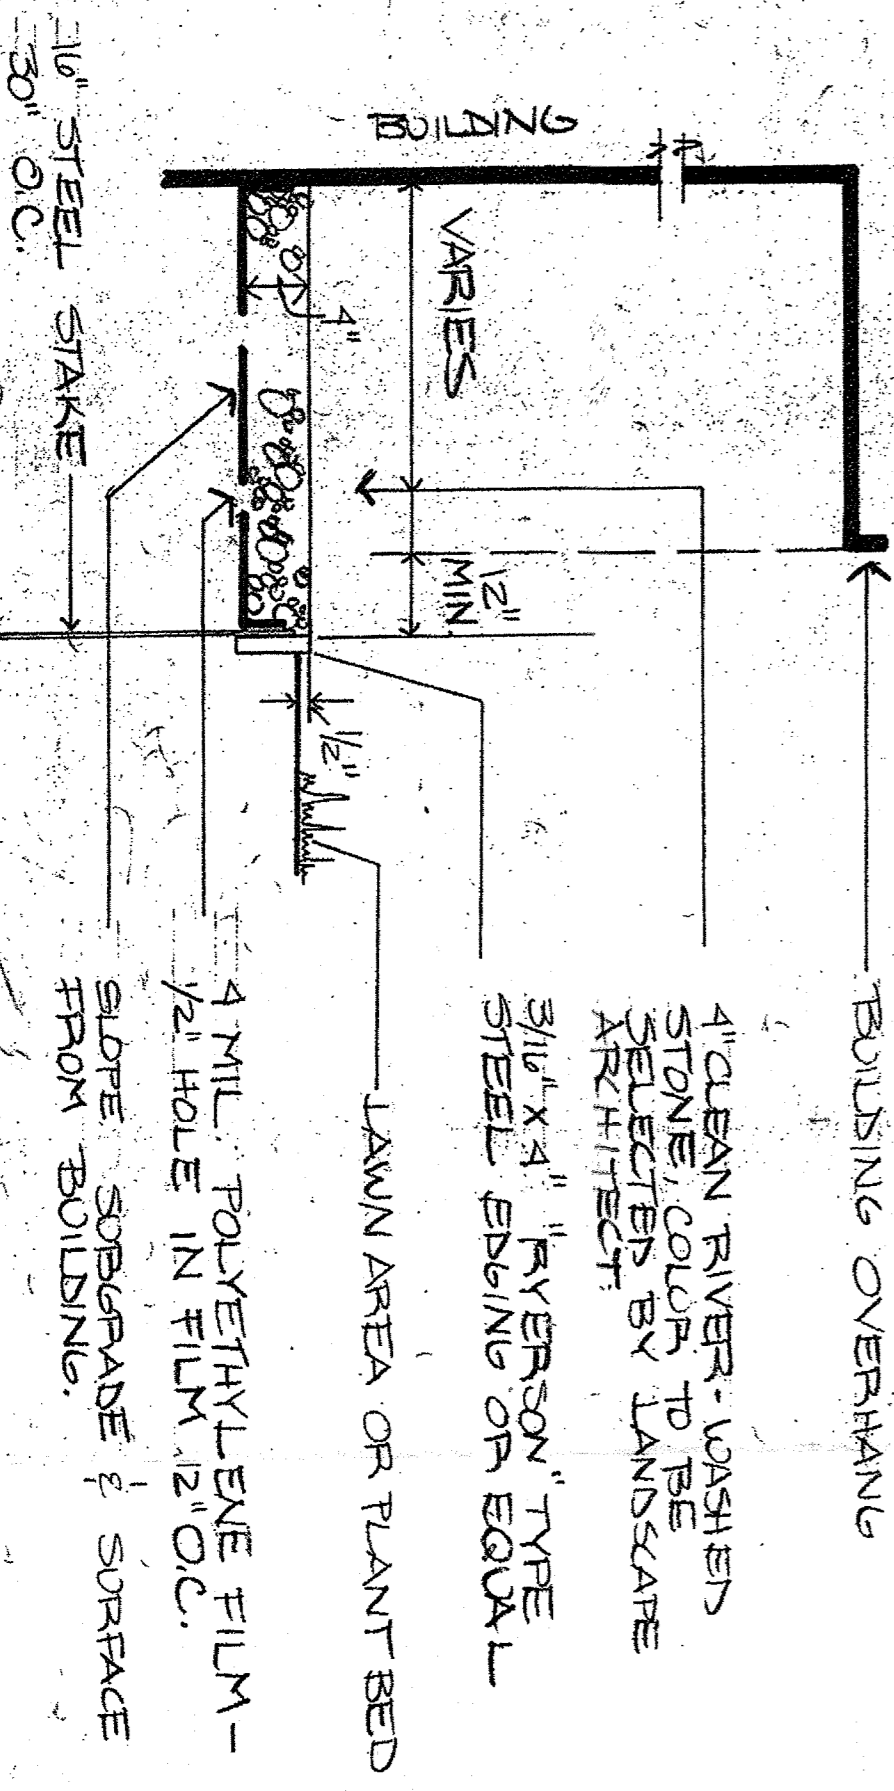 BUILDING OVERHANG
4" CLEAN RIVER-WASHED
STONE, COLOR TO BE
SELECTED BY LANDSCAPE
ARCHITECT.
3/16" X 4" "RYERSON" TYPE
STEEL EDGING OR EQUAL
LAWN AREA OR PLANT BED
4 MIL. POLYETHYLENE FILM-
1/2" HOLE IN FILM 12" O.C.
SLOPE SUBGRADE & SURFACE
FROM BUILDING.
BUILDING
VARIES
12"
MIN.
4"
1/2"
16" STEEL STAKE
30" O.C.